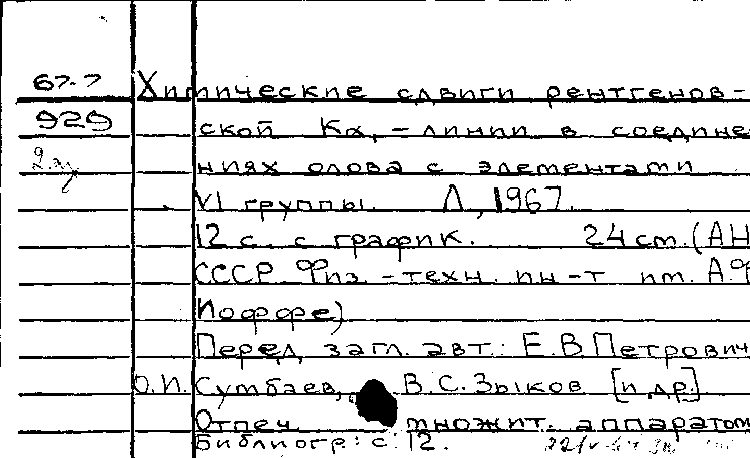 67-7 Химические сдвиги рентгенов-
929 ской Kα,-линии в соедине
ниях олова с элементами
VI группы. Л, 1967.
12 с. с график. 24 см. (АН
СССР. Физ.-техн. ин-т им. А.Ф
Иоффе)
Перед загл. авт.: Е.В. Петрович
О.И. Сумбаев, В.С. Зыков [и др.]
Отпеч. множит. аппаратом
Библиогр: с. 12.